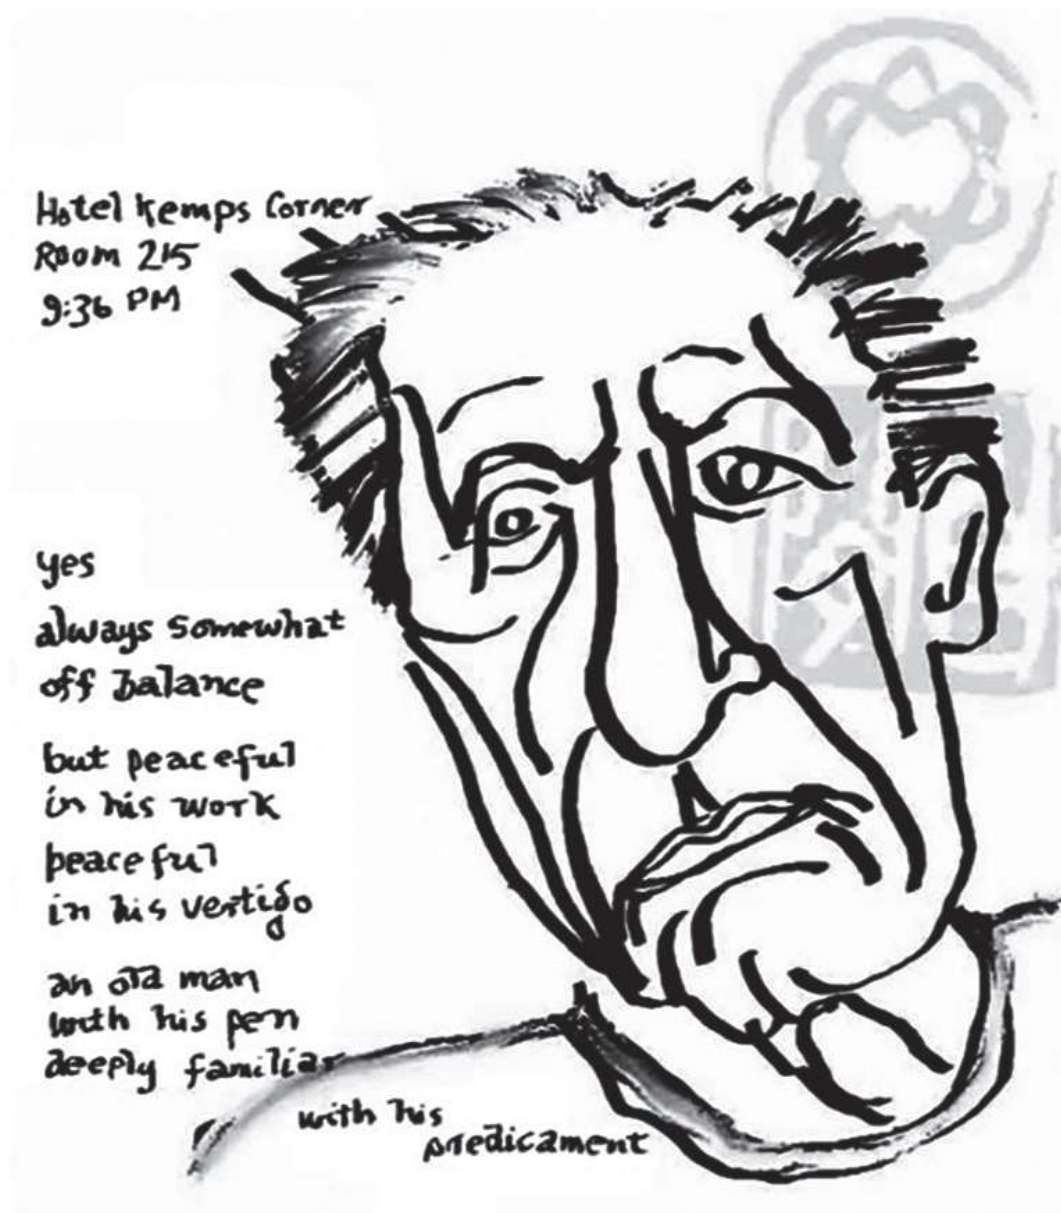 Hotel Kemps Corner
Room 215
9:36 PM
yes
always somewhat
off balance
but peaceful
in his work
peaceful
in his vertigo
an old man
with his pen
deeply familiar
with his
predicament